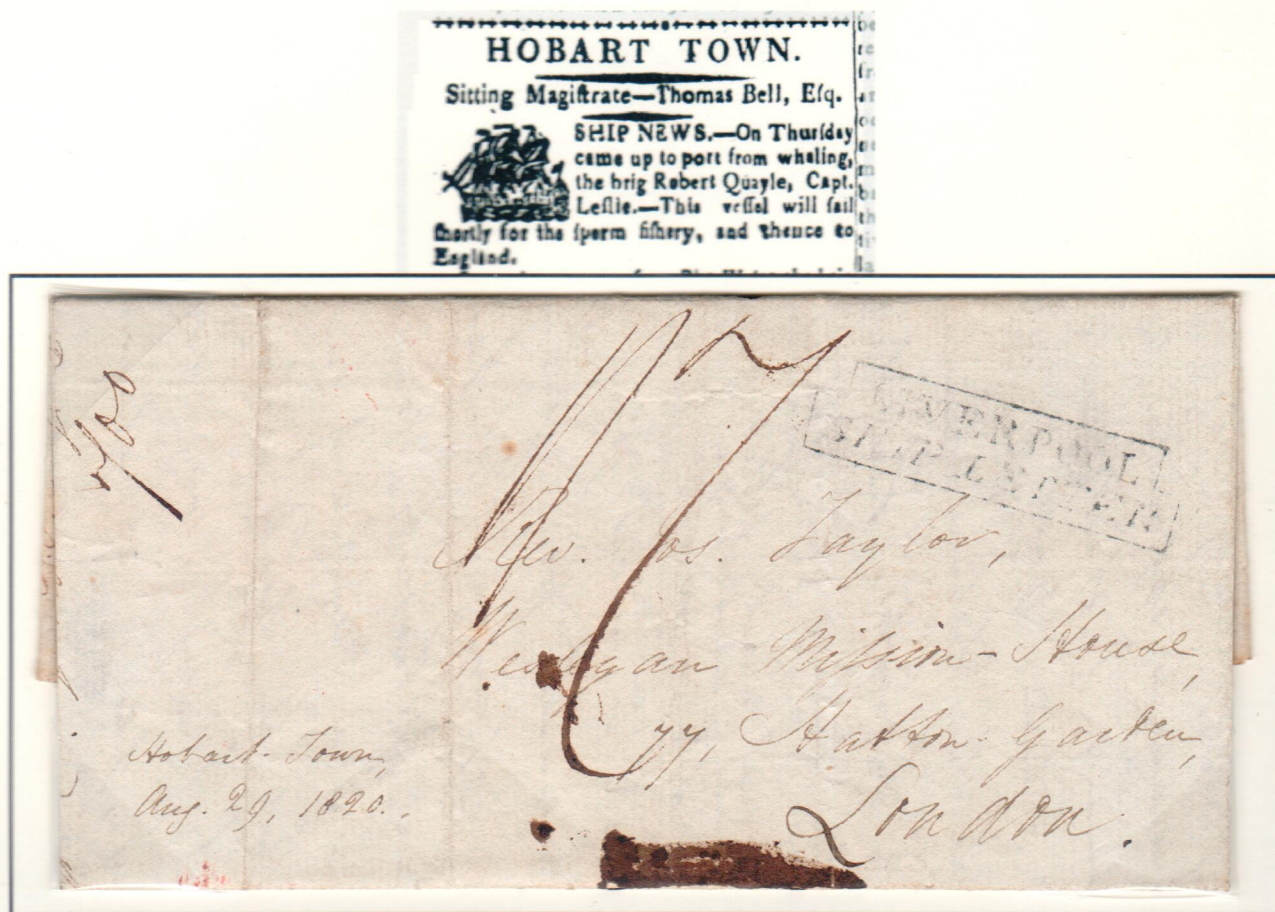 HOBART TOWN.
Sitting Magiſtrate—Thomas Bell, Eſq.
SHIP NEWS.—On Thurſday
came up to port from whaling,
the brig Robert Quayle, Capt.
Leſlie.—This veſſel will ſail
ſhortly for the ſperm fiſhery, and thence to
England.
LIVERPOOL
SHIP LETTER
Rev. Jos. Taylor,
Wesleyan Mission-House,
77, Hatton-Garden,
London.
Hobart-Town,
Aug. 29, 1820.